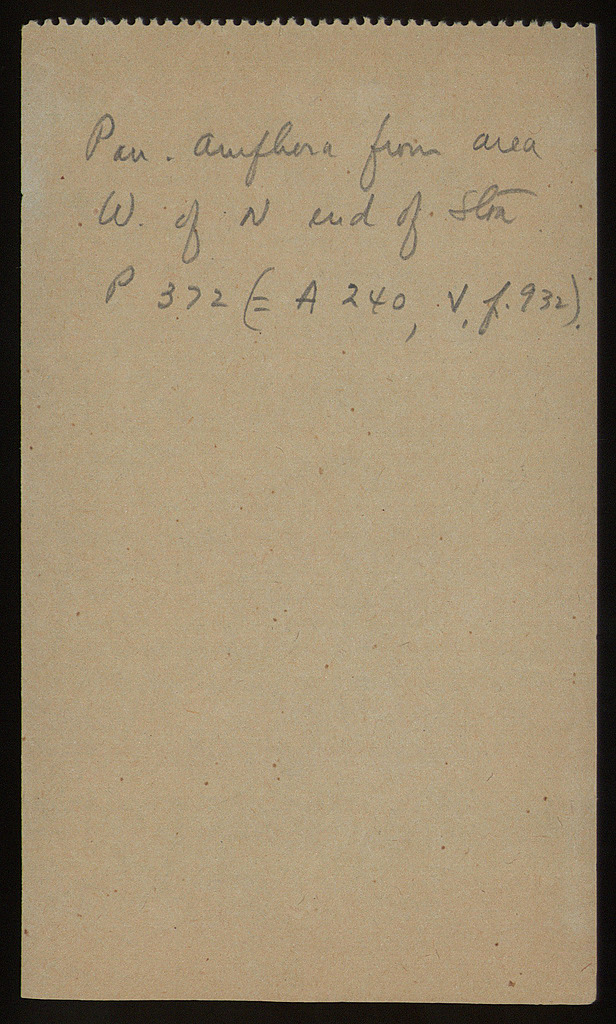 Pan. amphora from area
W. of N end of Stoa
P 372 (= A 240, V, p. 932).